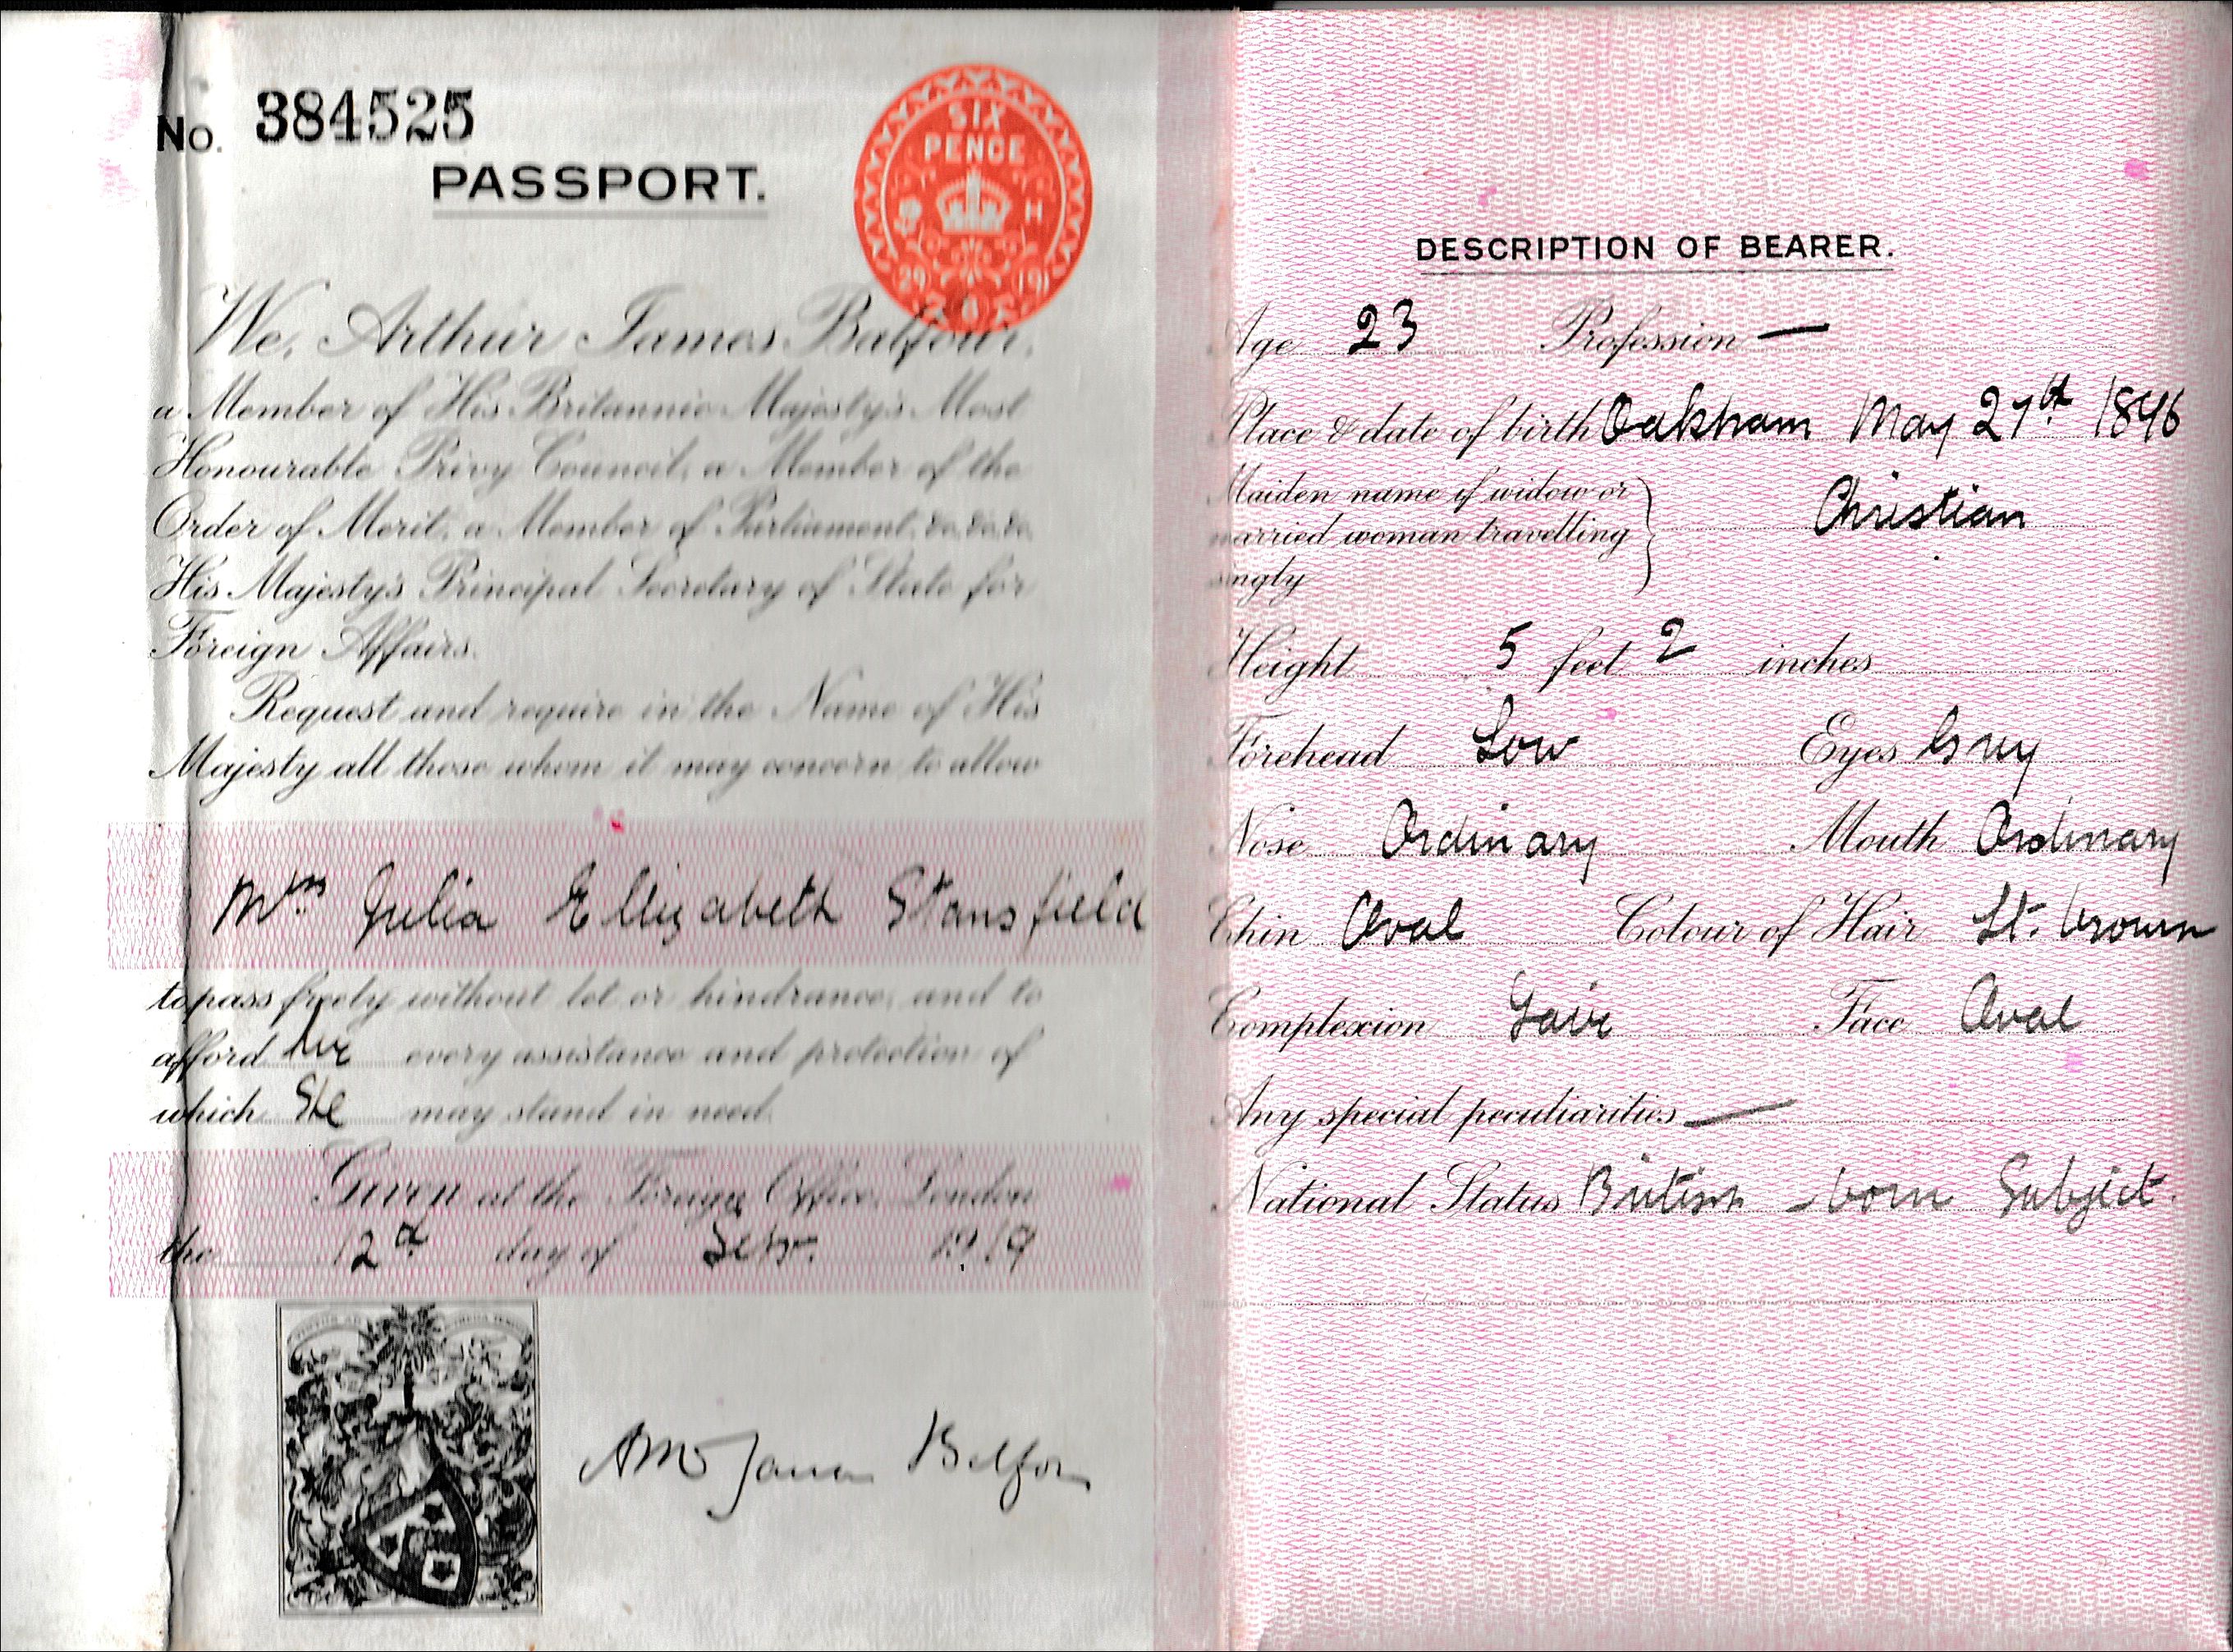 No. 384525
PASSPORT.
SIX
PENCE
29 191
We, Arthur James Balfour,
a Member of His Britannic Majesty's Most
Honourable Privy Council, a Member of the
Order of Merit, a Member of Parliament, &c, &c, &c,
His Majesty's Principal Secretary of State for
Foreign Affairs.
Request and require in the Name of His
Majesty all those whom it may concern to allow
Mrs Julia Elizabeth Stansfield
to pass freely without let or hindrance, and to
afford her every assistance and protection of
which She may stand in need.
Given at the Foreign Office, London
the 12th day of Sepr. 1919
DESCRIPTION OF BEARER.
Age 23 Profession —
Place & date of birth Oakham May 27th 1896
Maiden name if widow or
married woman travelling
singly
Christian
Height 5 feet 2 inches
Forehead Low Eyes Grey
Nose Ordinary Mouth Ordinary
Chin Oval Colour of Hair Lt. brown
Complexion Fair Face Oval
Any special peculiarities —
National Status British-born Subject.